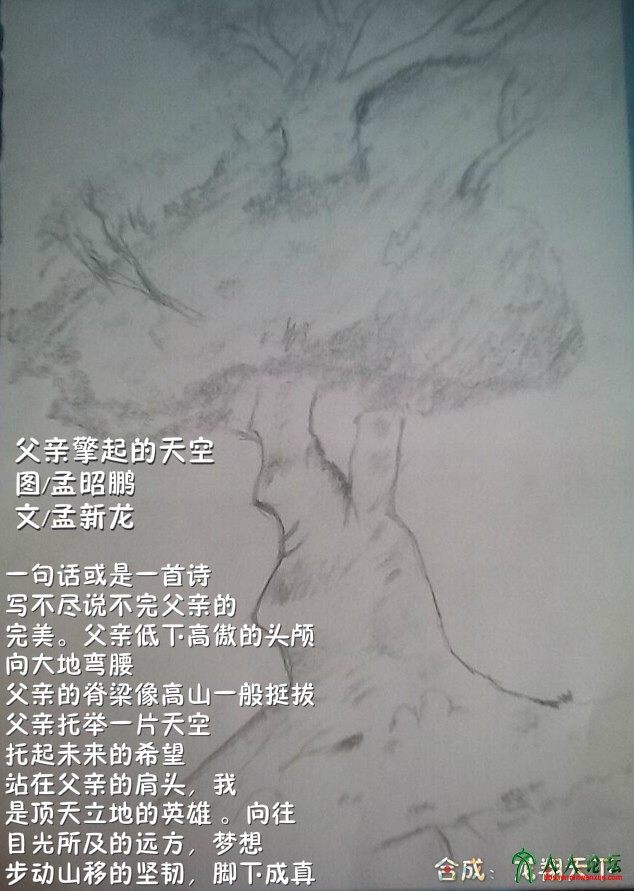 父亲擎起的天空
图/孟昭鹏
文/孟新龙
一句话或是一首诗
写不尽说不完父亲的
完美。父亲低下高傲的头颅
向大地弯腰
父亲的脊梁像高山一般挺拔
父亲托举一片天空
托起未来的希望
站在父亲的肩头，我
是顶天立地的英雄。向往
目光所及的远方，梦想
步动山移的坚韧，脚下成真
合成：龙翔
人人论坛